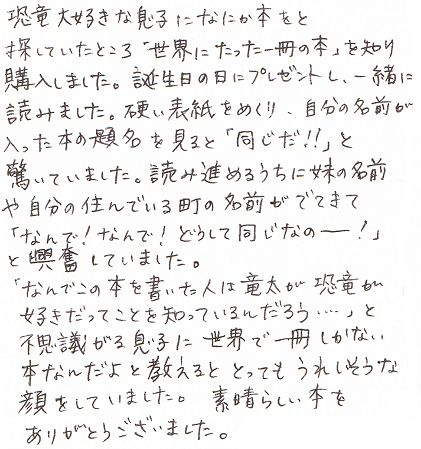 恐竜大好きな息子になにか本をと
探していたところ「世界にたった一冊の本」を知り
購入しました。誕生日の日にプレゼントし、一緒に
読みました。硬い表紙をめくり、自分の名前が
入った本の題名を見ると「同じだ!!」と
驚いていました。読み進めるうちに妹の名前
や自分の住んでいる町の名前がでてきて
「なんで!なんで!どうして同じなのー!」
と興奮していました。
「なんでこの本を書いた人は竜太が恐竜が
好きだってことを知っているんだろう....」と
不思議がる息子に世界で一冊しかない
本なんだよと教えるととってもうれしそうな
顔をしていました。 素晴らしい本を
ありがとうございました。